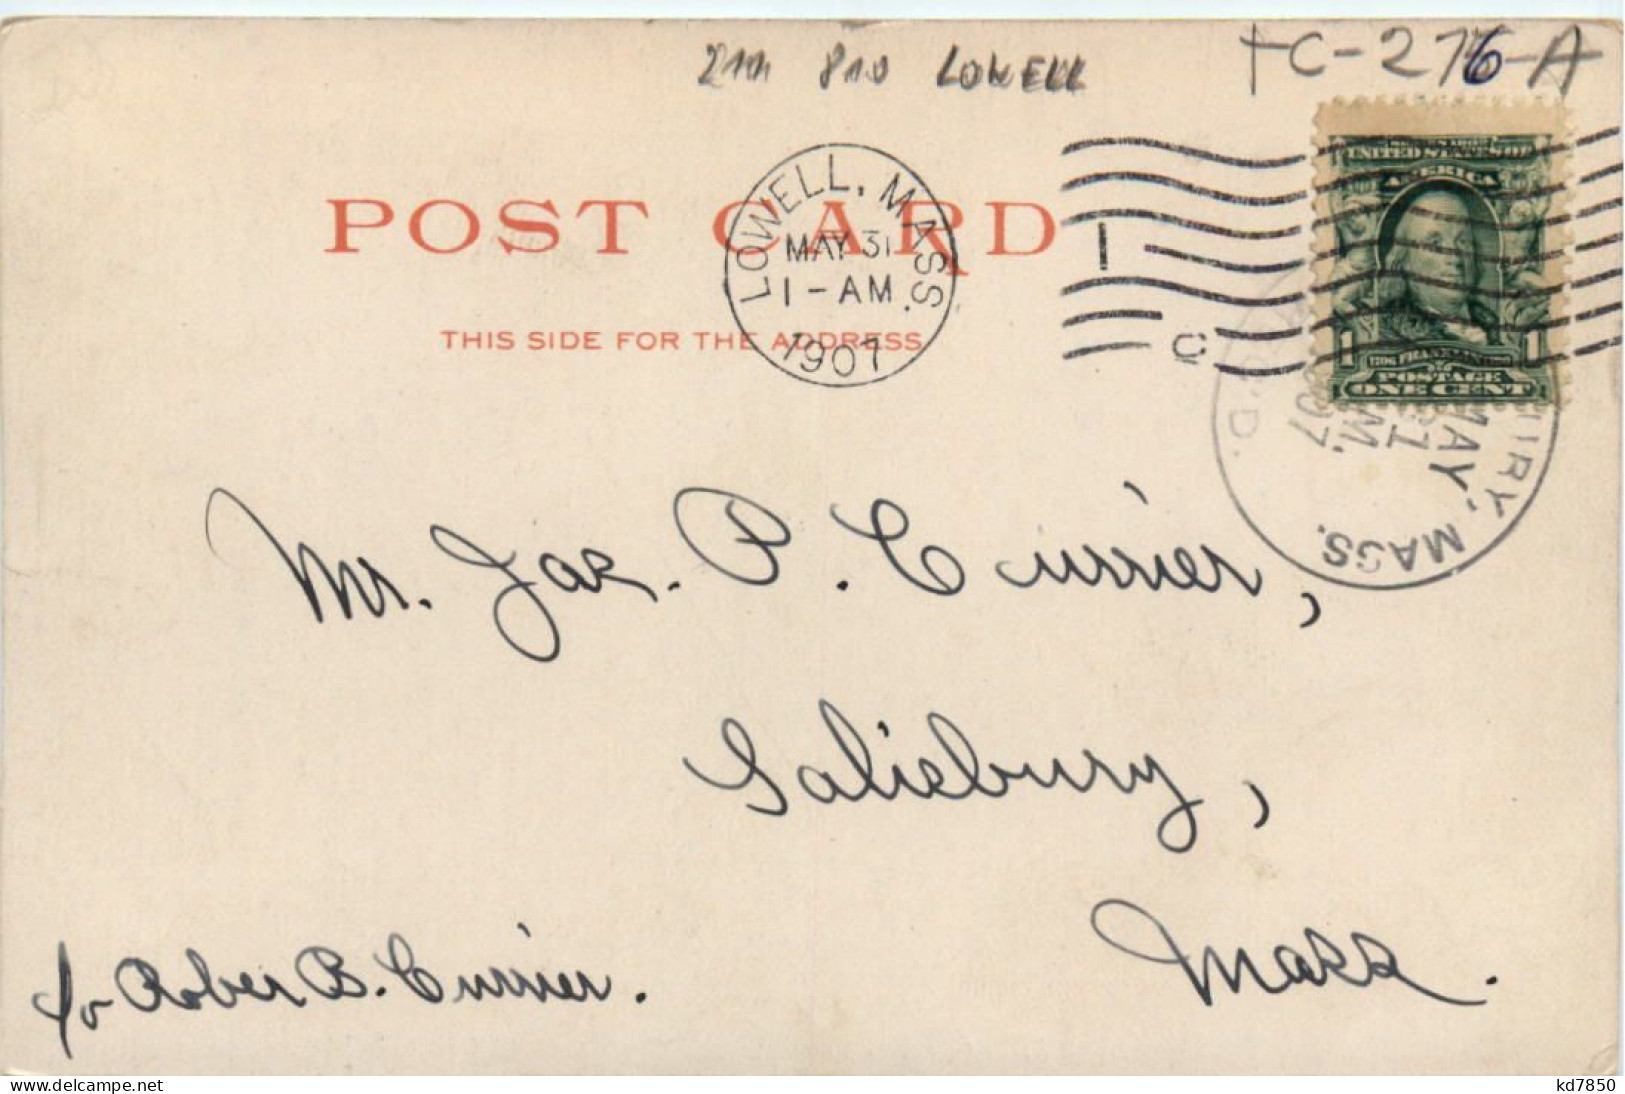 LOWELL TC-276-A
LOWELL, MASS.
MAY 31
1 - AM
1907
POST CARD
THIS SIDE FOR THE ADDRESS
UNITED STATES OF
AMERICA
1 FRANKLIN 1
POSTAGE
ONE CENT
REC'D.
MAY
31
M.
07
MASS.
Mr. Jas. P. Currier,
Salisbury,
Mass.
for Rober B. Currier.
www.delcampe.net
kd7850